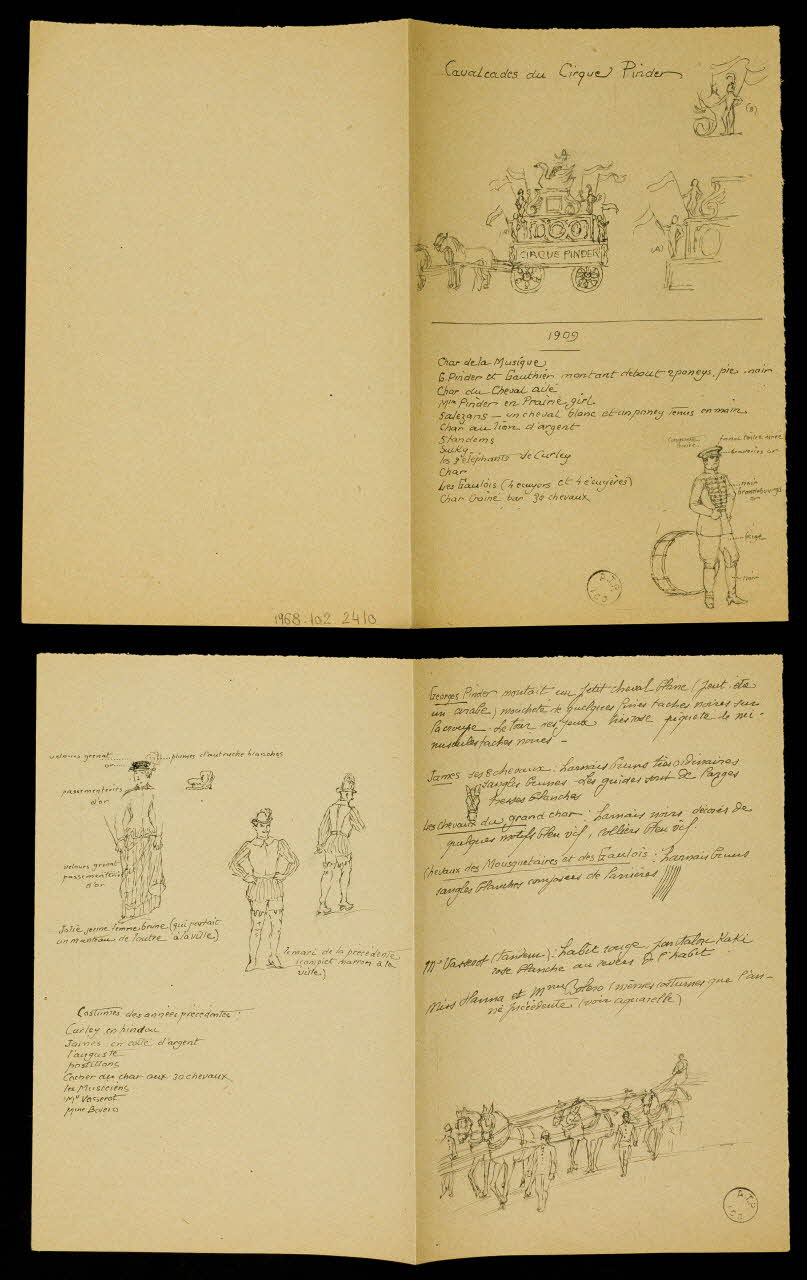 Cavalcades du Cirque Pinder
(B)
(A)
CIRQUE PINDER
1909
Char de la Musique
G. Pinder et Gauthier montant debout 2 poneys pie noir
Char du Cheval ailé
Mme Pinder en Prairie girl
Salezans — un cheval blanc et un poney tenus en main
Char au lion d'argent
5 tandems
Sulky
les 2 éléphants de Curley
Char
Les Gaulois (4 écuyers et 4 écuyères)
Char traîné par 30 chevaux
casquette noire
noire
broderies or
noir
brandebourgs
or
beige
noir
A.T.P.
1968.102.24 10
velours grenat
or
plumes d'autruche blanches
passementeries
d'or
velours grenat
passementerie
d'or
Jolie jeune femme brune (qui portait
un manteau de loutre à la ville)
le mari de la précédente
(complet marron à la
ville)
Costumes des années précédentes :
Curley en hindou
James en cotte d'argent
l'auguste
postillons
Cocher du char aux 30 chevaux
les Musiciens
Mr Vasserot
Mme Bovero
Georges Pinder montait un petit cheval blanc (peut-être
un arabe) moucheté de quelques fines taches noires sur
la croupe. Le tour des yeux très rose piqueté de mi-
nuscules taches noires —
James ses 8 chevaux : harnais bruns très ordinaires
sangles brunes - les guides sont de larges
tresses blanches
Les chevaux du grand char : harnais noirs décorés de
quelques motifs bleu vif, colliers bleu vif.
Chevaux des Mousquetaires et des Gaulois : harnais bruns
sangles blanches composées de lanières
Mr Vasserot (tandem) : habit rouge pantalon Kaki
rose blanche au revers de l'habit
Miss Hanna et Mme (mêmes costumes que l'an-
née précédente (voir aquarelle)
A.T.P.